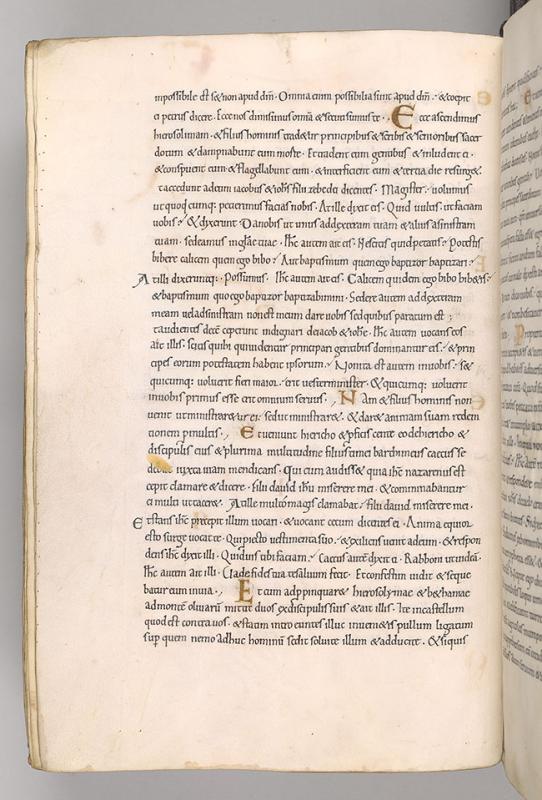 inpossibile est sed non apud dm̄. Omnia enim possibilia sunt apud dm̄. & coepit
ei petrus dicere. Ecce nos dimisimus omnia & secuti sumus te. Ecce ascendimus
hierosolimam. & filius hominis tradetur principibus & scribis & senioribus sacer
dotum & dampnabunt eum morte. Et tradent eum gentibus & inludent ei.
& conspuent eum & flagellabunt eum. & interficient eum & tertia die resurg&.
t accedunt ad eum iacobus & iohs̄ filii zebedei dicentes. Magister. volumus
ut quodcumq; petierimus facias nobis. At ille dixit eis. Quid vultis ut faciam
vobis. & dixerunt Da nobis ut unus ad dexteram tuam & alius ad sinistram
tuam. sedeamus in gloria tua. Ihc̄ autem ait eis. Nescitis quid petatis. Potestis
bibere calicem quem ego bibo. Aut baptismum quo ego baptizor baptizari.
At illi dixerunt ei. Possumus. Ihc̄ autem ait eis. Calicem quidem ego bibo bib&is.
& baptismum quo ego baptizor baptizabimini. Sedere autem ad dexteram
meam vel ad sinistram non est meum dare vobis sed quibus paratum est.
t audientes decē ceperunt indignari de iacob & iohe. Ihc̄ autem vocans eos
ait illis. Scitis quia qui videntur principari gentibus dominantur eis. & prin
cipes eorum potestatem habent ipsorum. Non ita est autem in vobis. sed
quicumq; voluerit fieri maior. erit vester minister. & quicumq; voluerit
in vobis primus esse erit omnium servus. Nam & filius hominis non
venit ut ministraretur ei sed ut ministrar&. & dar& animam suam redem
tionem p multis. Et veniunt hiericho & pficiscente eo de hiericho &
discipulis eius & plurima multitudine filius timei bartimeus caecus se
debat iuxta viam mendicans. Qui cum audiss& quia ihc̄ nazarenus est
cepit clamare & dicere. Fili david ihū miserere mei. & comminabantur
ei multi ut tacer&. At ille multo magis clamabat. Fili david miserere mei.
Et stans ihc̄ precepit illum vocari. & vocant cecum dicentes ei. Animaequior
esto surge vocat te. Qui piecto vestimento suo. & exiliens venit ad eum. & respon
dens ihc̄ dixit illi. Quid vis tibi faciam. Caecus autē dixit ei. Rabboni ut videā.
Ihc̄ autem ait illi. Vade fides tua te salvum fecit. Et confestim vidit & seque
batur eum in via. Et cum adppinquar& hierosolymae & bethaniae
ad montē olivarū mittit duos ex discipulis suis & ait illis. Ite in castellum
quod est contra vos. & statim intro euntes illuc inveni&is pullum ligatum
sup quem nemo adhuc hominū sedit solvite illum & adducite. & si quis